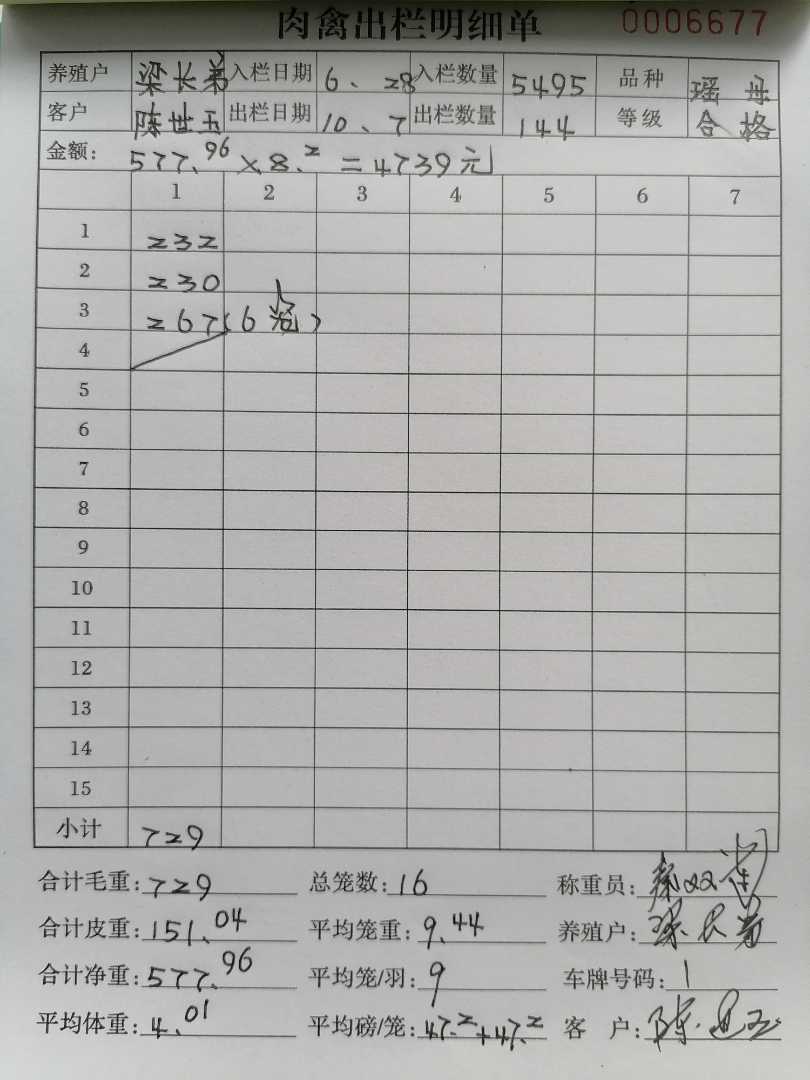 肉禽出栏明细单 0006677
养殖户 梁长弟 入栏日期 6、28 入栏数量 5495 品种 瑶丹
客户 陈世玉 出栏日期 10、7 出栏数量 144 等级 合格
金额: 577.96×8.2=4739元
1 2 3 4 5 6 7
1 232
2 230
3 267(6笼)
4
5
6
7
8
9
10
11
12
13
14
15
小计 729
合计毛重: 729 总笼数: 16 称重员:
合计皮重: 151.04 平均笼重: 9.44 养殖户: 梁长弟
合计净重: 577.96 平均笼/羽: 9 车牌号码: 1
平均体重: 4.01 平均磅/笼: 47.2+47.2 客 户: 陈世玉